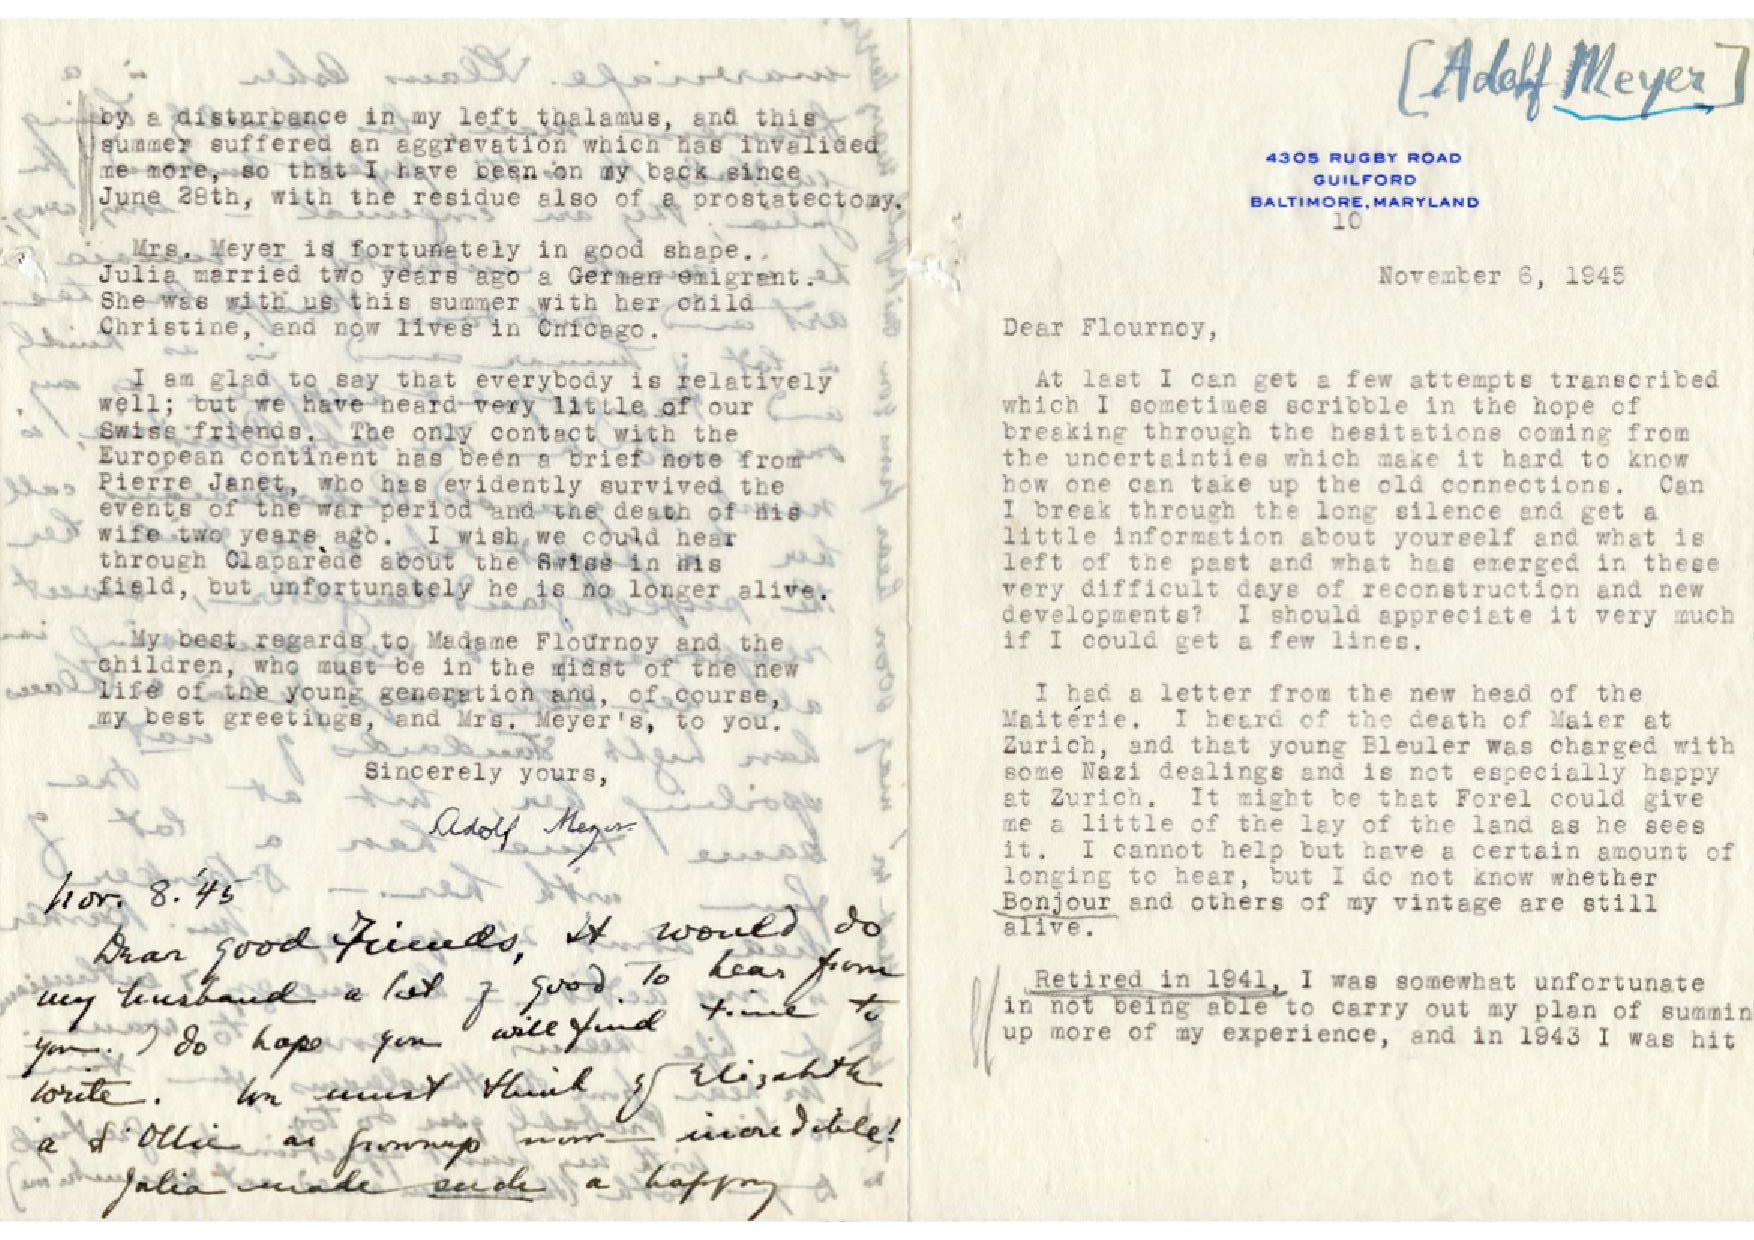 [Adolf Meyer]
4305 RUGBY ROAD
GUILFORD
BALTIMORE, MARYLAND
10
November 6, 1945
Dear Flournoy,
At last I can get a few attempts transcribed
which I sometimes scribble in the hope of
breaking through the hesitations coming from
the uncertainties which make it hard to know
how one can take up the old connections. Can
I break through the long silence and get a
little information about yourself and what is
left of the past and what has emerged in these
very difficult days of reconstruction and new
developments? I should appreciate it very much
if I could get a few lines.
I had a letter from the new head of the
Maitérie. I heard of the death of Maier at
Zurich, and that young Bleuler was charged with
some Nazi dealings and is not especially happy
at Zurich. It might be that Forel could give
me a little of the lay of the land as he sees
it. I cannot help but have a certain amount of
longing to hear, but I do not know whether
Bonjour and others of my vintage are still
alive.
Retired in 1941, I was somewhat unfortunate
in not being able to carry out my plan of summin
up more of my experience, and in 1943 I was hit
by a disturbance in my left thalamus, and this
summer suffered an aggravation which has invalided
me more, so that I have been on my back since
June 28th, with the residue also of a prostatectomy.
Mrs. Meyer is fortunately in good shape.
Julia married two years ago a German emigrant.
She was with us this summer with her child
Christine, and now lives in Chicago.
I am glad to say that everybody is relatively
well; but we have heard very little of our
Swiss friends. The only contact with the
European continent has been a brief note from
Pierre Janet, who has evidently survived the
events of the war period and the death of his
wife two years ago. I wish we could hear
through Claparède about the Swiss in his
field, but unfortunately he is no longer alive.
My best regards to Madame Flournoy and the
children, who must be in the midst of the new
life of the young generation and, of course,
my best greetings, and Mrs. Meyer's, to you.
Sincerely yours,
Adolf Meyer
Nov. 8. '45
Dear good Friends, it would do
my husband a lot of good to hear from
you. I do hope you will find time to
write. We must think of Elizabeth
& Ollie as grownup now — incredible!
Julia made such a happy